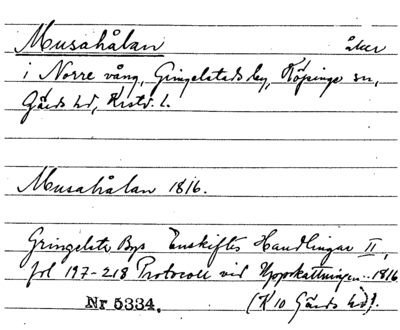 Musahålan åker
i Norre vång, Gringelstads by, Köpinge sn,
Gärds hd, Krist. l.
Musahålan 1816.
Gringelsta Bys Enskiftes Handlingar II,
fol 197-218 Protocoll vid Uppskattningen.. 1816.
Nr 5334. (K 10 Gärds hd).